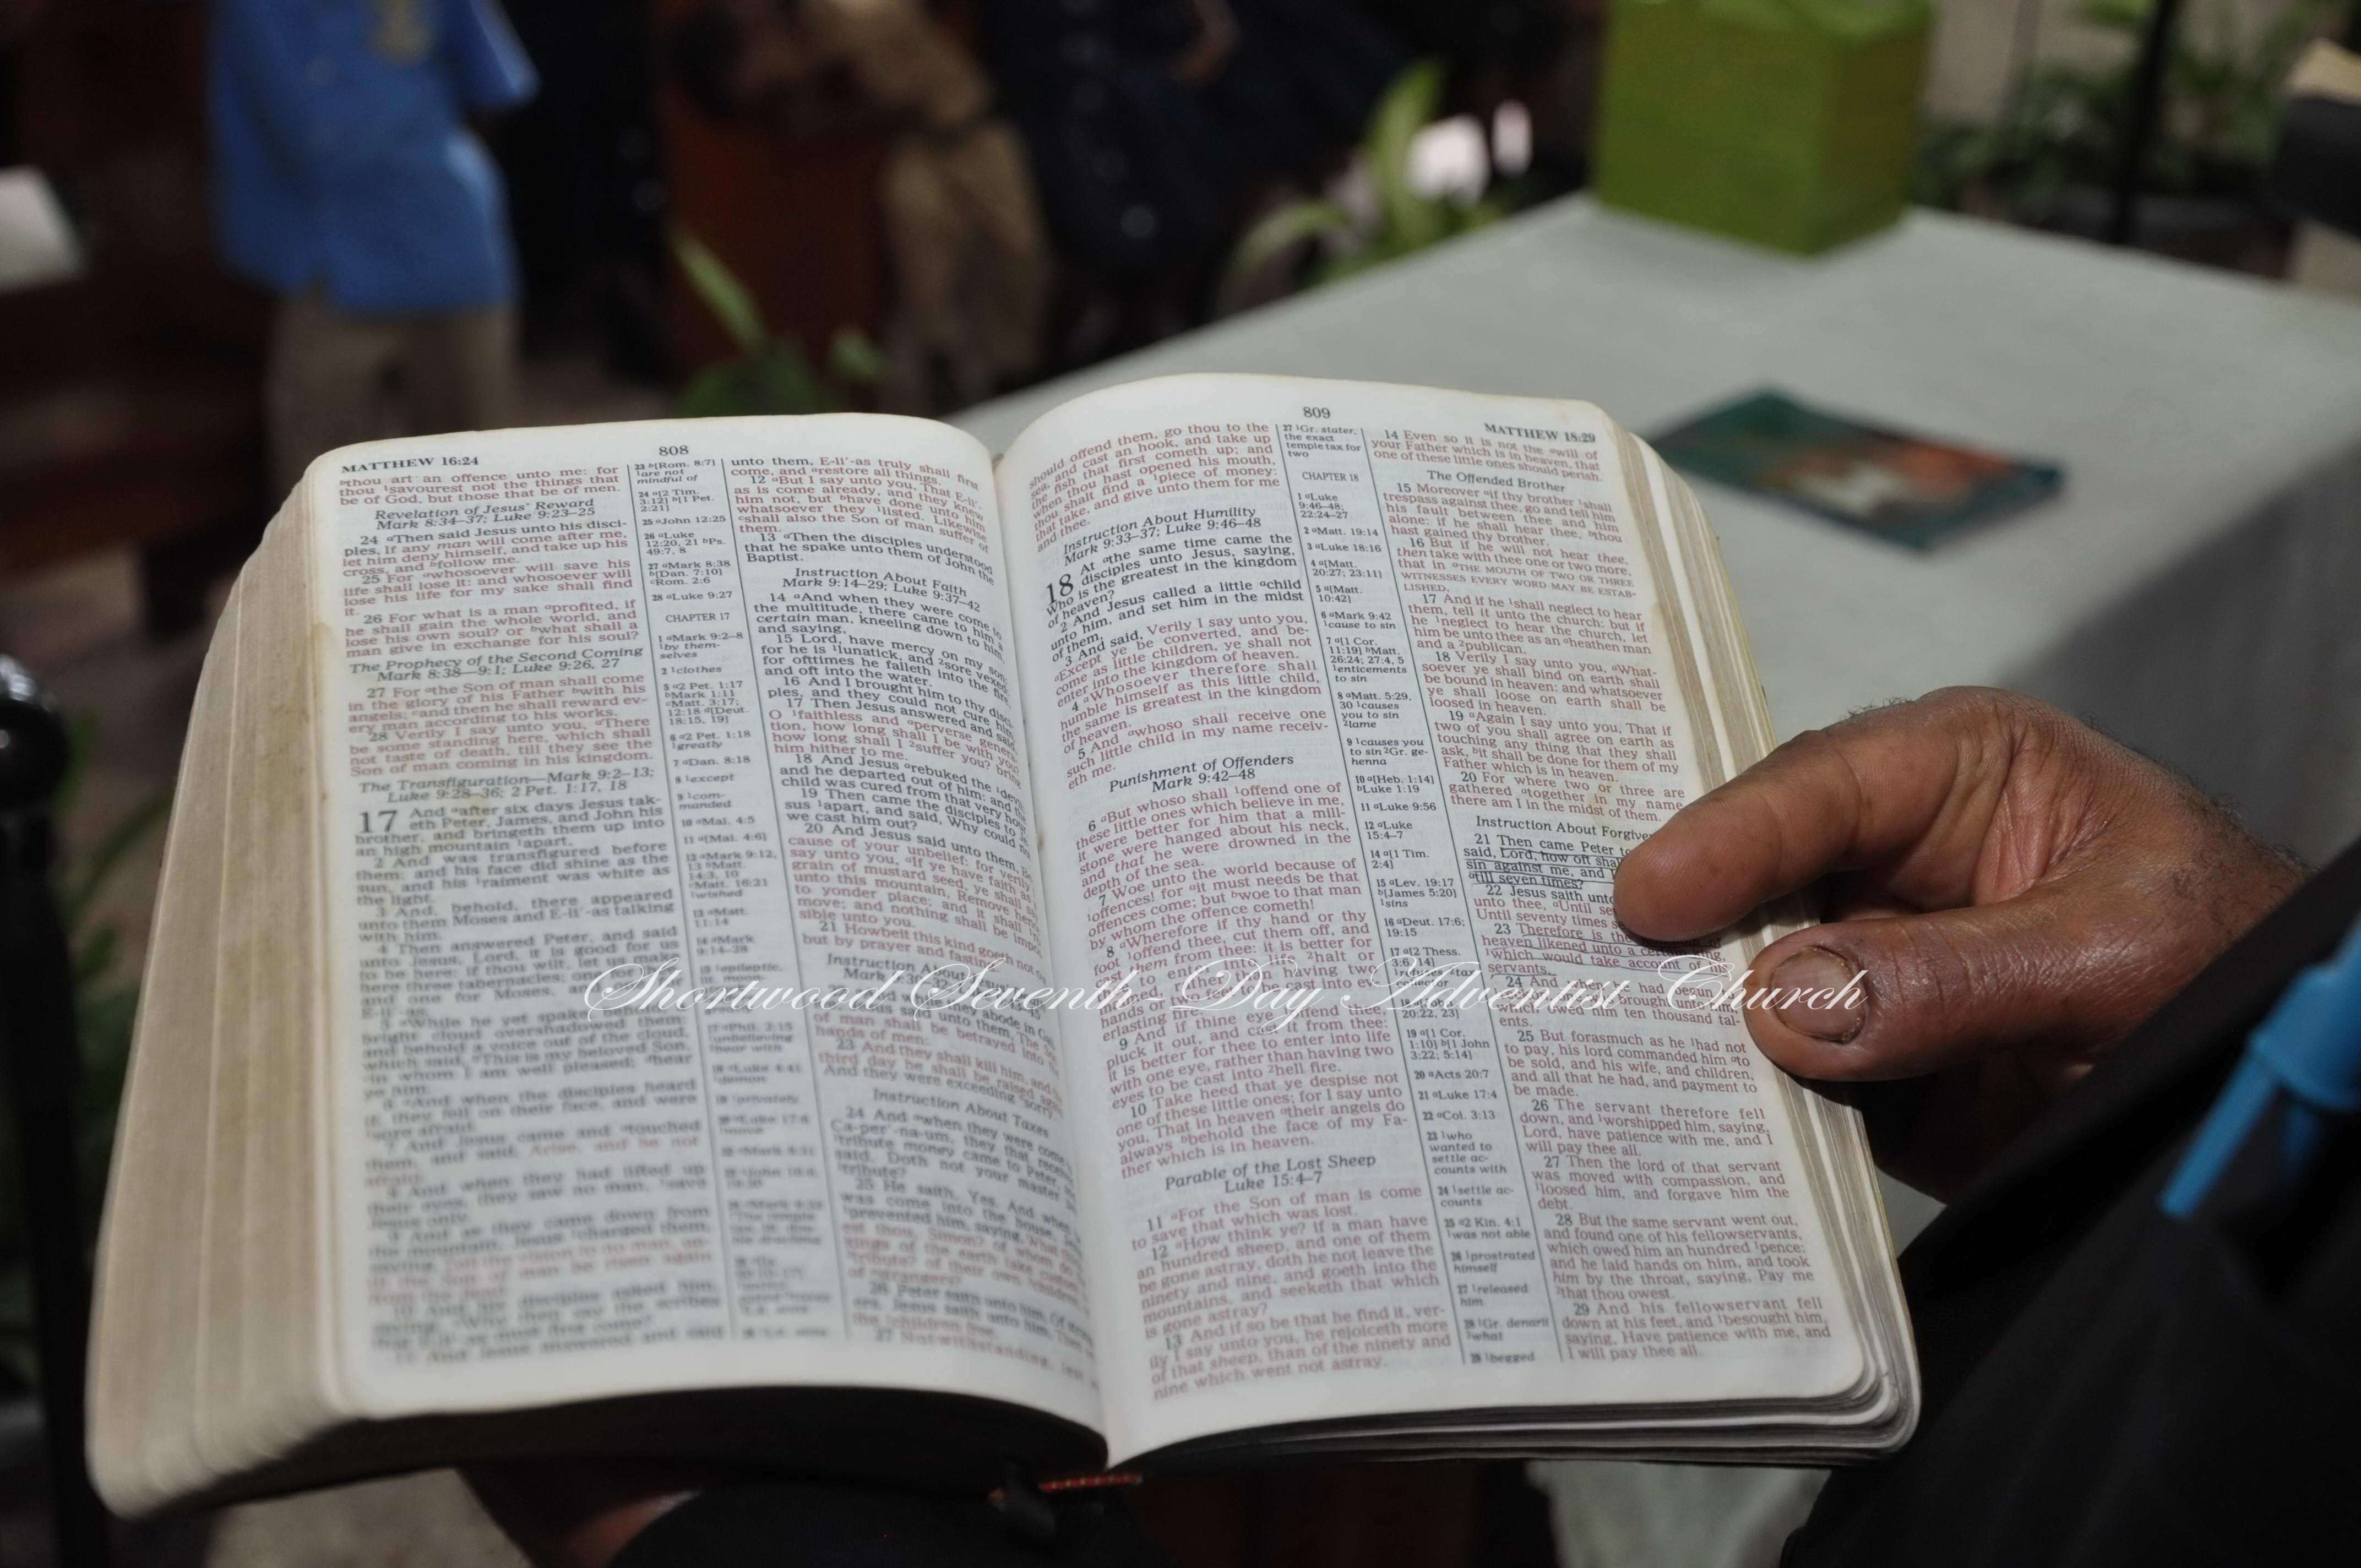 808
MATTHEW 16:24
bthou art an offence unto me: for
thou 1savourest not the things that
be of God, but those that be of men.
Revelation of Jesus' Reward
Mark 8:34–37; Luke 9:23–25
24 aThen said Jesus unto his disci-
ples, If any man will come after me,
let him deny himself, and take up his
cross, and bfollow me.
25 For awhosoever will save his
life shall lose it: and whosoever will
lose his life for my sake shall find
it.
26 For what is a man aprofited, if
he shall gain the whole world, and
lose his own soul? or bwhat shall a
man give in exchange for his soul?
The Prophecy of the Second Coming
Mark 8:38–9:1; Luke 9:26, 27
27 For athe Son of man shall come
in the glory of his Father bwith his
angels; cand then he shall reward ev-
ery man according to his works.
28 Verily I say unto you, aThere
be some standing here, which shall
not taste of death, till they see the
Son of man coming in his kingdom.
The Transfiguration—Mark 9:2–13;
Luke 9:28–36; 2 Pet. 1:17, 18
17 And aafter six days Jesus tak-
eth Peter, James, and John his
brother, and bringeth them up into
an high mountain 1apart,
2 And was transfigured before
them: and his face did shine as the
sun, and his 1raiment was white as
the light.
3 And, behold, there appeared
unto them Moses and E-li'-as talking
with him.
4 Then answered Peter, and said
unto Jesus, Lord, it is good for us
to be here: if thou wilt, let us make
here three tabernacles; one for
and one for Moses, and
E-li'-as.
5 aWhile he yet spake, behold,
bright cloud overshadowed them:
and behold a voice out of the cloud,
which said, bThis is my beloved Son,
cin whom I am well pleased; dhear
ye him.
6 aAnd when the disciples heard
it, they fell on their face, and were
sore afraid.
7 And Jesus came and atouched
them, and said, Arise, and be not
afraid.
8 And when they had lifted up
their eyes, they saw no man, 1save
Jesus only.
9 And as they came down from
the mountain, Jesus 1charged them,
saying, Tell the vision to no man, un-
til the Son of man be risen again
from the dead.
10 And his disciples asked him,
saying, aWhy then say the scribes
that E-li'-as must first come?
11 And Jesus answered and said
23 b[Rom. 8:7]
1are not
mindful of
24 a[2 Tim.
3:12] b[1 Pet.
2:21]
25 aJohn 12:25
26 aLuke
12:20, 21 bPs.
49:7, 8
27 aMark 8:38
b[Dan. 7:10]
cRom. 2:6
28 aLuke 9:27
CHAPTER 17
1 aMark 9:2–8
1by them-
selves
2 1clothes
5 a2 Pet. 1:17
bMark 1:11
cMatt. 3:17;
12:18 d[Deut.
18:15, 19]
6 a2 Pet. 1:18
1greatly
7 aDan. 8:18
8 1except
9 1com-
manded
10 aMal. 4:5
11 a[Mal. 4:6]
12 aMark 9:12,
13 bMatt.
14:3, 10
cMatt. 16:21
1wished
13 aMatt.
11:14
14 aMark
9:14–28
15 1epileptic,
17 aPhil. 2:15
1unbelieving
2bear with
18 aLuke 4:41
1demon
19 1privately
20 aLuke 17:6
1move
unto them, E-li'-as truly shall first
come, and arestore all things.
12 aBut I say unto you, That E-li'-
as is come already, and they knew
him not, but bhave done unto him
whatsoever they 1listed. Likewise
cshall also the Son of man suffer of
them.
13 aThen the disciples understood
that he spake unto them of John the
Baptist.
Instruction About Faith
Mark 9:14–29; Luke 9:37–42
14 aAnd when they were come to
the multitude, there came to him a
certain man, kneeling down to him,
and saying,
15 Lord, have mercy on my son:
for he is 1lunatick, and 2sore vexed:
for ofttimes he falleth into the fire,
and oft into the water.
16 And I brought him to thy disci-
ples, and they could not cure him.
17 Then Jesus answered and said,
O 1faithless and aperverse genera-
tion, how long shall I be with you?
how long shall I 2suffer you? bring
him hither to me.
18 And Jesus arebuked the 1devil;
and he departed out of him: and the
child was cured from that very hour.
19 Then came the disciples to Je-
sus 1apart, and said, Why could not
we cast him out?
20 And Jesus said unto them, Be-
cause of your unbelief: for verily I
say unto you, aIf ye have faith as a
grain of mustard seed, ye shall say
unto this mountain, Remove hence
to yonder place; and it shall re-
move; and nothing shall be impos-
sible unto you.
21 Howbeit this kind goeth not out
but by prayer and fasting.
Instruction About
Mark 9:30–32;
they abode in Gal-
Jesus said unto them, The Son
of man shall be betrayed into the
hands of men:
23 And they shall kill him, and the
third day he shall be raised again.
And they were exceeding sorry.
Instruction About Taxes
24 And awhen they were come to
Ca-per'-na-um, they that received
1tribute money came to Peter, and
said, Doth not your master pay
1tribute?
25 He saith, Yes. And when he
was come into the house, Jesus
1prevented him, saying, What think-
est thou, Simon? of whom do the
kings of the earth take custom or
2tribute? of their own 3children, or
of strangers?
26 Peter saith unto him, Of strang-
ers. Jesus saith unto him, Then are
the children free.
27 Notwithstanding, lest we
809
MATTHEW 18:29
should offend them, go thou to the
sea, and cast an hook, and take up
the fish that first cometh up; and
when thou hast opened his mouth,
thou shalt find a 1piece of money:
that take, and give unto them for me
and thee.
Instruction About Humility
Mark 9:33–37; Luke 9:46–48
18 At athe same time came the
disciples unto Jesus, saying,
Who is the greatest in the kingdom
of heaven?
2 And Jesus called a little achild
unto him, and set him in the midst
of them,
3 And said, Verily I say unto you,
aExcept ye be converted, and be-
come as little children, ye shall not
enter into the kingdom of heaven.
4 aWhosoever therefore shall
humble himself as this little child,
the same is greatest in the kingdom
of heaven.
5 And awhoso shall receive one
such little child in my name receiv-
eth me.
Punishment of Offenders
Mark 9:42–48
6 aBut whoso shall 1offend one of
these little ones which believe in me,
it were better for him that a mill-
stone were hanged about his neck,
and that he were drowned in the
depth of the sea.
7 Woe unto the world because of
1offences! for ait must needs be that
offences come; but bwoe to that man
by whom the offence cometh!
8 aWherefore if thy hand or thy
foot 1offend thee, cut them off, and
cast them from thee: it is better for
thee to enter into life 2halt or
maimed, rather than having two
hands or two feet to be cast into ev-
erlasting fire.
9 And if thine eye offend thee,
pluck it out, and cast it from thee:
it is better for thee to enter into life
with one eye, rather than having two
eyes to be cast into 2hell fire.
10 Take heed that ye despise not
one of these little ones; for I say unto
you, That in heaven atheir angels do
always bbehold the face of my Fa-
ther which is in heaven.
Parable of the Lost Sheep
Luke 15:4–7
11 aFor the Son of man is come
to save that which was lost.
12 aHow think ye? if a man have
an hundred sheep, and one of them
be gone astray, doth he not leave the
ninety and nine, and goeth into the
mountains, and seeketh that which
is gone astray?
13 And if so be that he find it, ver-
ily I say unto you, he rejoiceth more
of that sheep, than of the ninety and
nine which went not astray.
27 1Gr. stater,
the exact
temple tax for
two
CHAPTER 18
1 aLuke
9:46–48;
22:24–27
2 aMatt. 19:14
3 aLuke 18:16
4 a[Matt.
20:27; 23:11]
5 a[Matt.
10:42]
6 aMark 9:42
1cause to sin
7 a[1 Cor.
11:19] bMatt.
26:24; 27:4, 5
1enticements
to sin
8 aMatt. 5:29,
30 1causes
you to sin
2lame
9 1causes you
to sin 2Gr. ge-
henna
10 a[Heb. 1:14]
bLuke 1:19
11 aLuke 9:56
12 aLuke
15:4–7
14 a[1 Tim.
2:4]
15 aLev. 19:17
b[James 5:20]
1sins
16 aDeut. 17:6;
19:15
17 a[2 Thess.
3:6, 14]
1refuses 2tax
collector
18 a[John
20:22, 23]
19 a[1 Cor.
1:10] b[1 John
3:22; 5:14]
20 aActs 20:7
21 aLuke 17:4
22 aCol. 3:13
23 1who
wanted to
settle ac-
counts with
24 1settle ac-
counts
25 a2 Kin. 4:1
1was not able
26 1prostrated
himself
27 1released
him
28 1Gr. denarii
2what
29 1begged
14 Even so it is not the awill of
your Father which is in heaven, that
one of these little ones should perish.
The Offended Brother
15 Moreover aif thy brother 1shall
trespass against thee, go and tell him
his fault between thee and him
alone: if he shall hear thee, bthou
hast gained thy brother.
16 But if he will not hear thee,
then take with thee one or two more,
that in aTHE MOUTH OF TWO OR THREE
WITNESSES EVERY WORD MAY BE ESTAB-
LISHED.
17 And if he 1shall neglect to hear
them, tell it unto the church: but if
he 1neglect to hear the church, let
him be unto thee as an aheathen man
and a 2publican.
18 Verily I say unto you, aWhat-
soever ye shall bind on earth shall
be bound in heaven: and whatsoever
ye shall loose on earth shall be
loosed in heaven.
19 aAgain I say unto you, That if
two of you shall agree on earth as
touching any thing that they shall
ask, bit shall be done for them of my
Father which is in heaven.
20 For where two or three are
gathered atogether in my name,
there am I in the midst of them.
Instruction About Forgive
21 Then came Peter to
said, Lord, how oft shal
sin against me, and I
atill seven times?
22 Jesus saith unto
unto thee, aUntil se
Until seventy times se
23 Therefore is the
heaven likened unto a certain king,
1which would take account of his
servants.
24 And when he had begun to
reckon, one was brought unto him,
which owed him ten thousand tal-
ents.
25 But forasmuch as he 1had not
to pay, his lord commanded him ato
be sold, and his wife, and children,
and all that he had, and payment to
be made.
26 The servant therefore fell
down, and 1worshipped him, saying,
Lord, have patience with me, and I
will pay thee all.
27 Then the lord of that servant
was moved with compassion, and
1loosed him, and forgave him the
debt.
28 But the same servant went out,
and found one of his fellowservants,
which owed him an hundred 1pence:
and he laid hands on him, and took
him by the throat, saying, Pay me
2that thou owest.
29 And his fellowservant fell
down at his feet, and 1besought him,
saying, Have patience with me, and
I will pay thee all.
Shortwood Seventh - Day Adventist Church